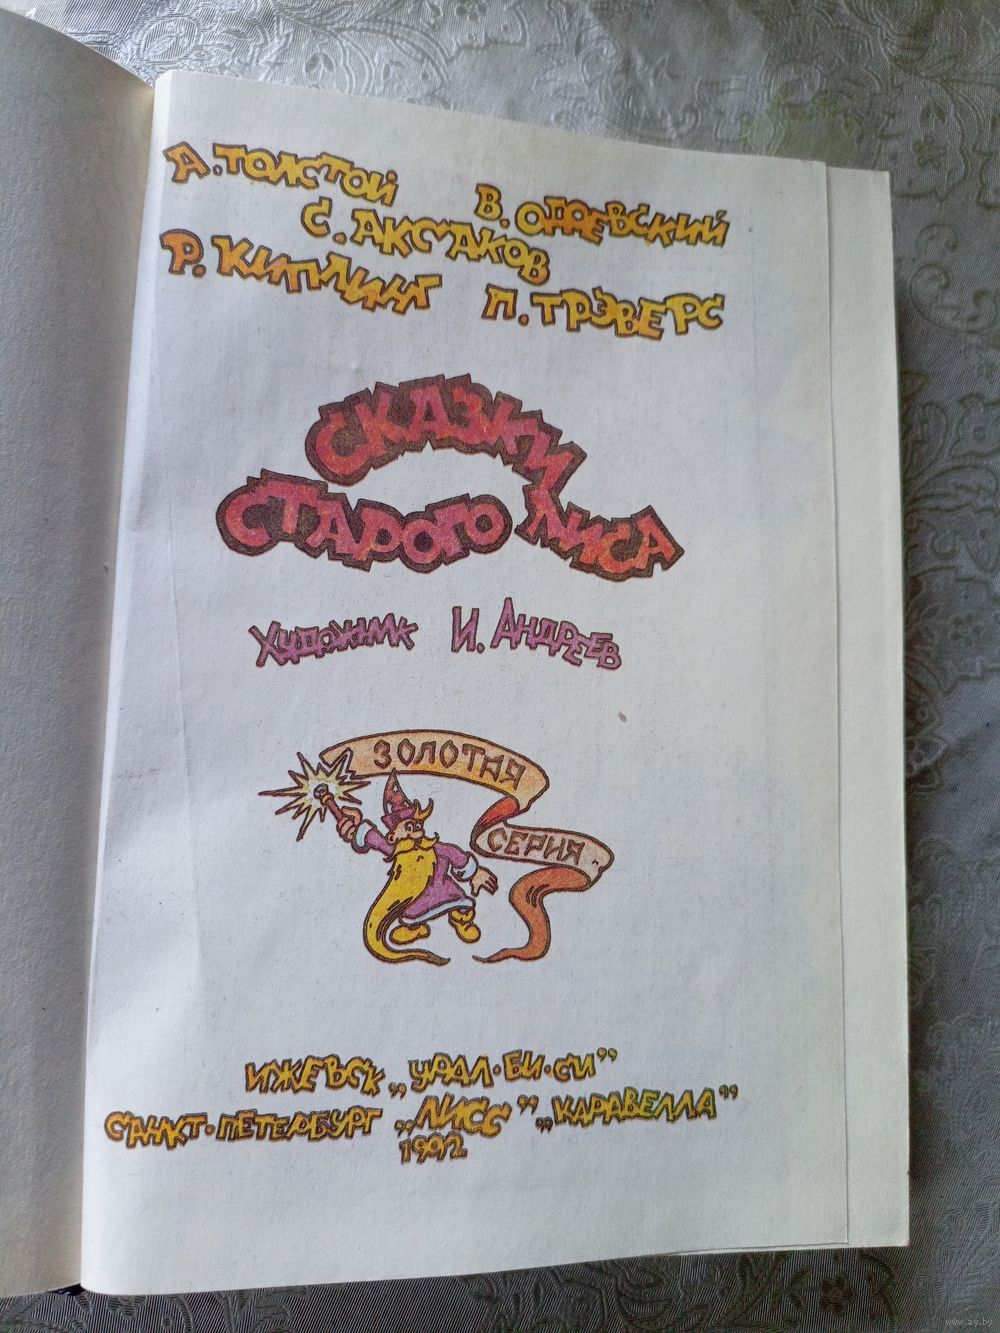 А. ТОЛСТОЙ В. ОДОЕВСКИЙ
С. АКСАКОВ
Р. КИПЛИНГ П. ТРЭВЕРС
СКАЗКИ
СТАРОГО ЛИСА
Художник И. Андреев
ЗОЛОТАЯ
СЕРИЯ
ИЖЕВСК „УРАЛ·БИ·СИ”
САНКТ-ПЕТЕРБУРГ „ЛИСС” „КАРАВЕЛЛА”
1992
www.ay.by